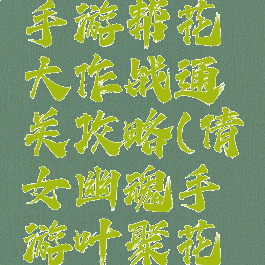 手游辩花
大作战通
关攻略(倩
女幽魂手
游叶聚花